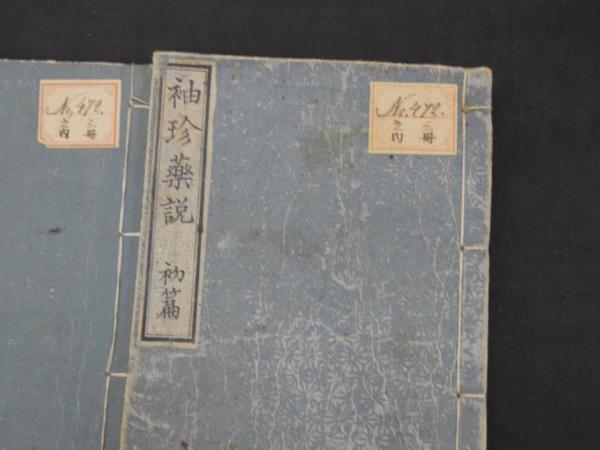 袖珍藥説
初篇
No. 472.
三冊
之内
No. 472.
三冊
之内